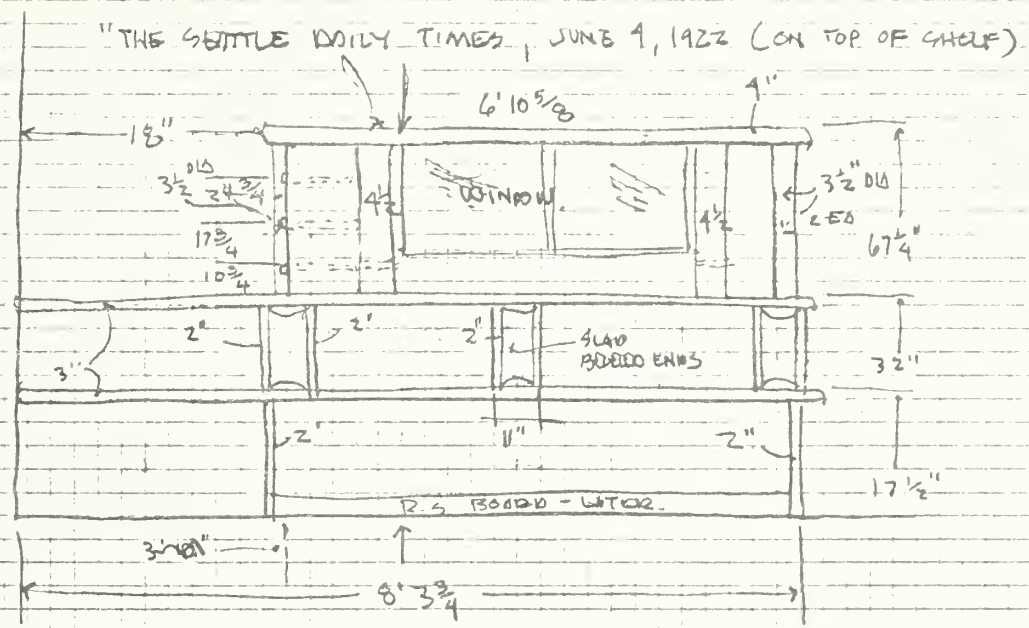 "THE SEATTLE DAILY TIMES, JUNE 4, 1922 (ON TOP OF SHELF)
4"
6' 10 5/8
18"
3 1/2 DIA
24 3/4
17 3/4
10 3/4
4 1/2
WINDOW.
4 1/2
3 1/2" DIA
2 EA
67 1/4"
2"
2"
2"
SLAB
BEVELED ENDS
3"
32"
2"
11"
2"
17 1/2"
R.S BOARD - LATER.
8' 3 3/4